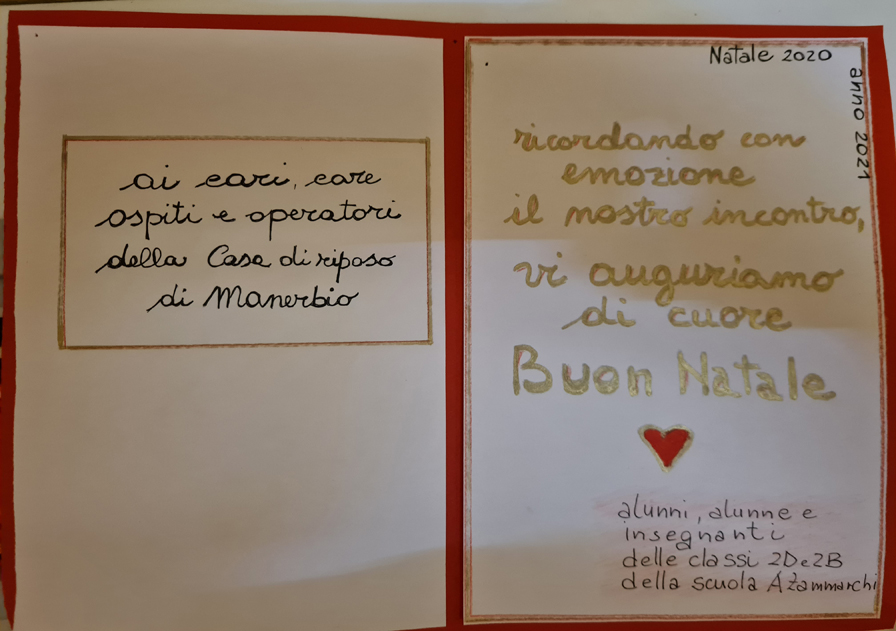 ai cari, care
ospiti e operatori
della Casa di riposo
di Manerbio
Natale 2020
anno 2021
ricordando con
emozione
il nostro incontro,
vi auguriamo
di cuore
Buon Natale
alunni, alunne e
insegnanti
delle classi 2D e 2B
della scuola A Zammarchi